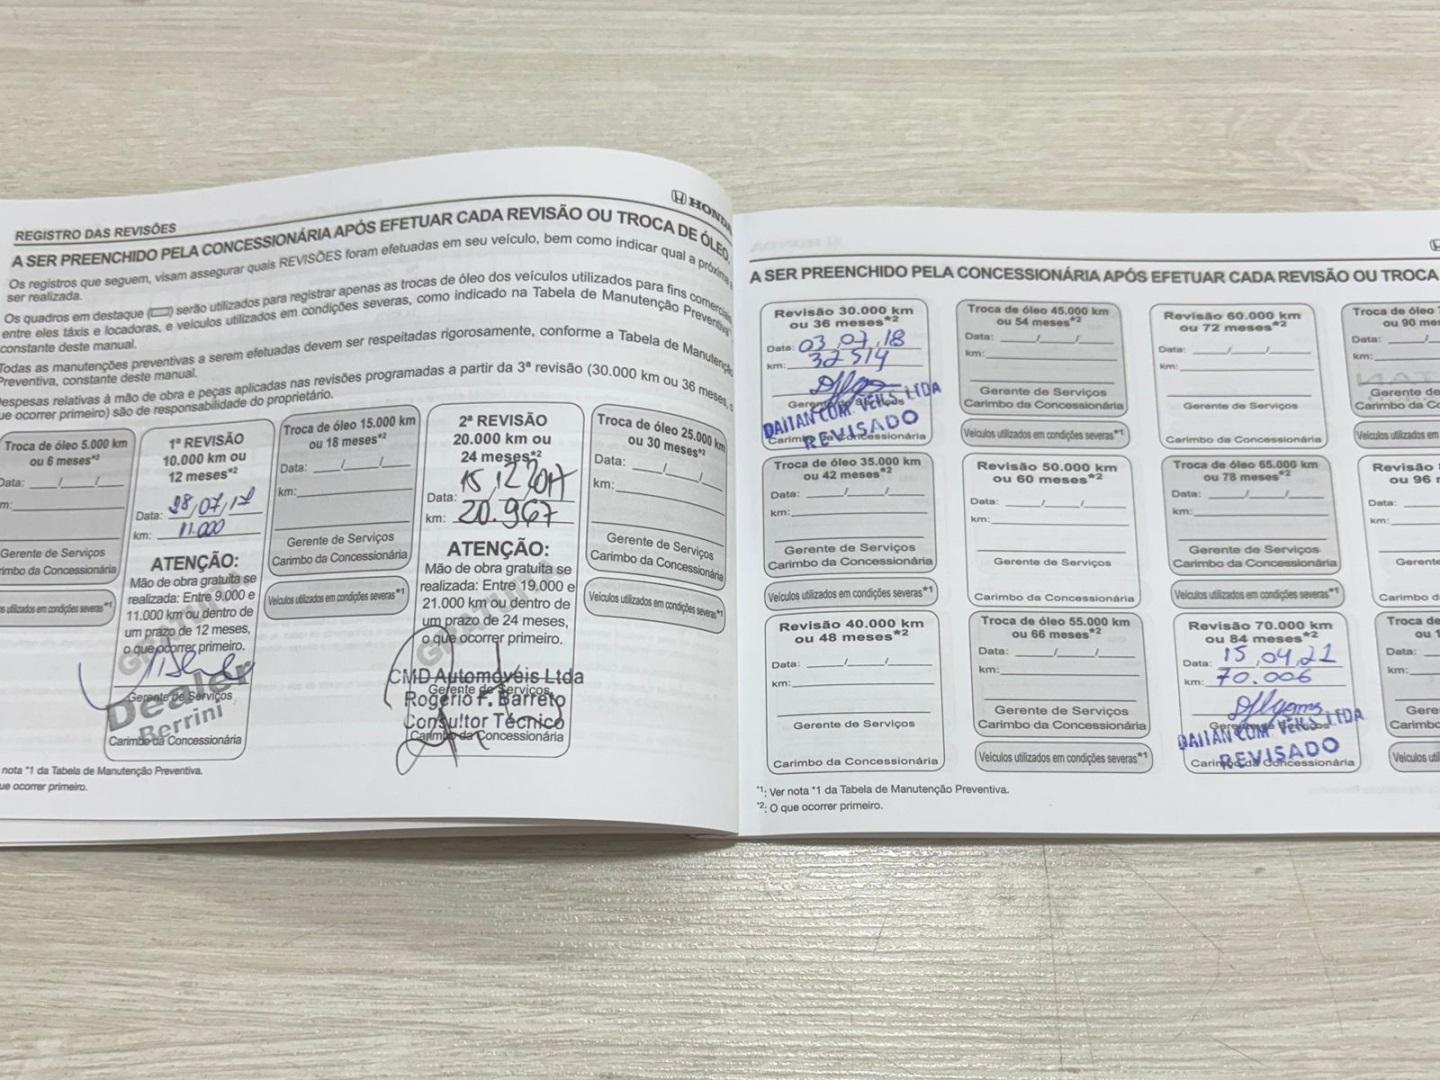 REGISTRO DAS REVISÕES
HONDA
A SER PREENCHIDO PELA CONCESSIONÁRIA APÓS EFETUAR CADA REVISÃO OU TROCA DE ÓLEO.
Os registros que seguem, visam assegurar quais REVISÕES foram efetuadas em seu veículo, bem como indicar qual a próxima a
ser realizada.
Os quadros em destaque ( ) serão utilizados para registrar apenas as trocas de óleo dos veículos utilizados para fins comerciais,
entre eles táxis e locadoras, e veículos utilizados em condições severas, como indicado na Tabela de Manutenção Preventiva*1
constante deste manual.
Todas as manutenções preventivas a serem efetuadas devem ser respeitadas rigorosamente, conforme a Tabela de Manutenção
Preventiva, constante deste manual.
espesas relativas à mão de obra e peças aplicadas nas revisões programadas a partir da 3ª revisão (30.000 km ou 36 meses, o
ue ocorrer primeiro) são de responsabilidade do proprietário.
Troca de óleo 5.000 km
ou 6 meses*2
Data: ___/___/___
m:
Gerente de Serviços
rimbo da Concessionária
s utilizados em condições severas*1
1ª REVISÃO
10.000 km ou
12 meses*2
Data: 28/07/17
km: 11.000
ATENÇÃO:
Mão de obra gratuita se
realizada: Entre 9.000 e
11.000 km ou dentro de
um prazo de 12 meses,
o que ocorrer primeiro.
Gerente de Serviços
Dealer
Berrini
Carimbo da Concessionária
Troca de óleo 15.000 km
ou 18 meses*2
Data: ___/___/___
km:
Gerente de Serviços
Carimbo da Concessionária
Veículos utilizados em condições severas*1
2ª REVISÃO
20.000 km ou
24 meses*2
Data: 15/12/2017
km: 20.967
ATENÇÃO:
Mão de obra gratuita se
realizada: Entre 19.000 e
21.000 km ou dentro de
um prazo de 24 meses,
o que ocorrer primeiro.
CMD Automóveis Ltda
Gerente de Serviços
Rogério F. Barreto
Consultor Técnico
Carimbo da Concessionária
Troca de óleo 25.000 km
ou 30 meses*2
Data: ___/___/___
km:
Gerente de Serviços
Carimbo da Concessionária
Veículos utilizados em condições severas*1
nota *1 da Tabela de Manutenção Preventiva.
ue ocorrer primeiro.
A SER PREENCHIDO PELA CONCESSIONÁRIA APÓS EFETUAR CADA REVISÃO OU TROCA
Revisão 30.000 km
ou 36 meses*2
Data: 03/07/18
km: 32514
Gerente de Serviços
DAITAN COM. VEILS LTDA
REVISADO
Carimbo da Concessionária
Troca de óleo 45.000 km
ou 54 meses*2
Data: ___/___/___
km:
Gerente de Serviços
Carimbo da Concessionária
Veículos utilizados em condições severas*1
Revisão 60.000 km
ou 72 meses*2
Data: ___/___/___
km:
Gerente de Serviços
Carimbo da Concessionária
Troca de óleo
ou 90 mes
Data:
km:
Gerente de
Carimbo da C
Veículos utilizados em
Troca de óleo 35.000 km
ou 42 meses*2
Data: ___/___/___
km:
Gerente de Serviços
Carimbo da Concessionária
Veículos utilizados em condições severas*1
Revisão 50.000 km
ou 60 meses*2
Data: ___/___/___
km:
Gerente de Serviços
Carimbo da Concessionária
Troca de óleo 65.000 km
ou 78 meses*2
Data: ___/___/___
km:
Gerente de Serviços
Carimbo da Concessionária
Veículos utilizados em condições severas*1
Revisão
ou 96 m
Data:
km:
Gerent
Carimbo d
Revisão 40.000 km
ou 48 meses*2
Data: ___/___/___
km:
Gerente de Serviços
Carimbo da Concessionária
Troca de óleo 55.000 km
ou 66 meses*2
Data: ___/___/___
km:
Gerente de Serviços
Carimbo da Concessionária
Veículos utilizados em condições severas*1
Revisão 70.000 km
ou 84 meses*2
Data: 15/04/21
km: 70.006
Gerente de Serviços
DAITAN COM. VEILS LTDA
REVISADO
Carimbo da Concessionária
Troca de
ou 1
Data:
km:
Gere
Carimbo
Veículos util
*1: Ver nota *1 da Tabela de Manutenção Preventiva.
*2: O que ocorrer primeiro.